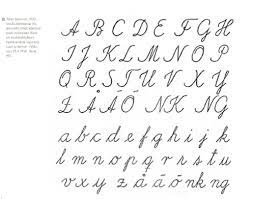 A B C D E F G H
I J K L M N O P
Q R S T U V X Y
Z Å Ä Ö NK NG
a b c d e f g h i j k
l m n o p q r s t u
v x y z å ä ö nk ng